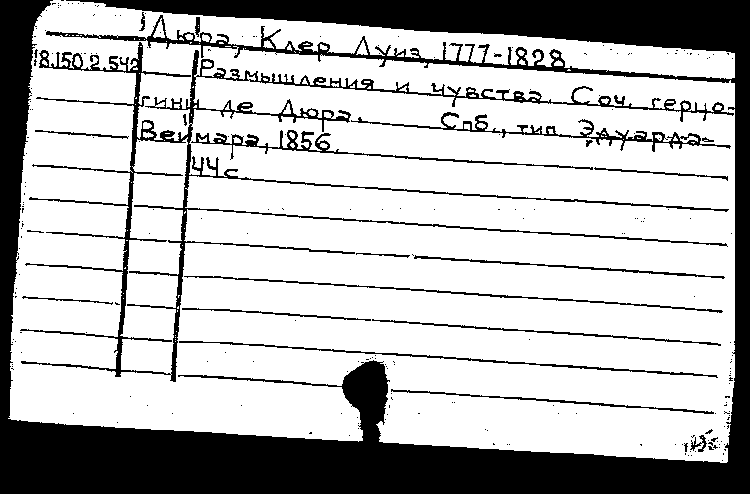 Дюра, Клер Луиз, 1777-1828.
18.150.2.542 Размышления и чувства. Соч. герцо=
гини де Дюра. Спб., тип. Эдуарда
Веймара, 1856.
44 с.